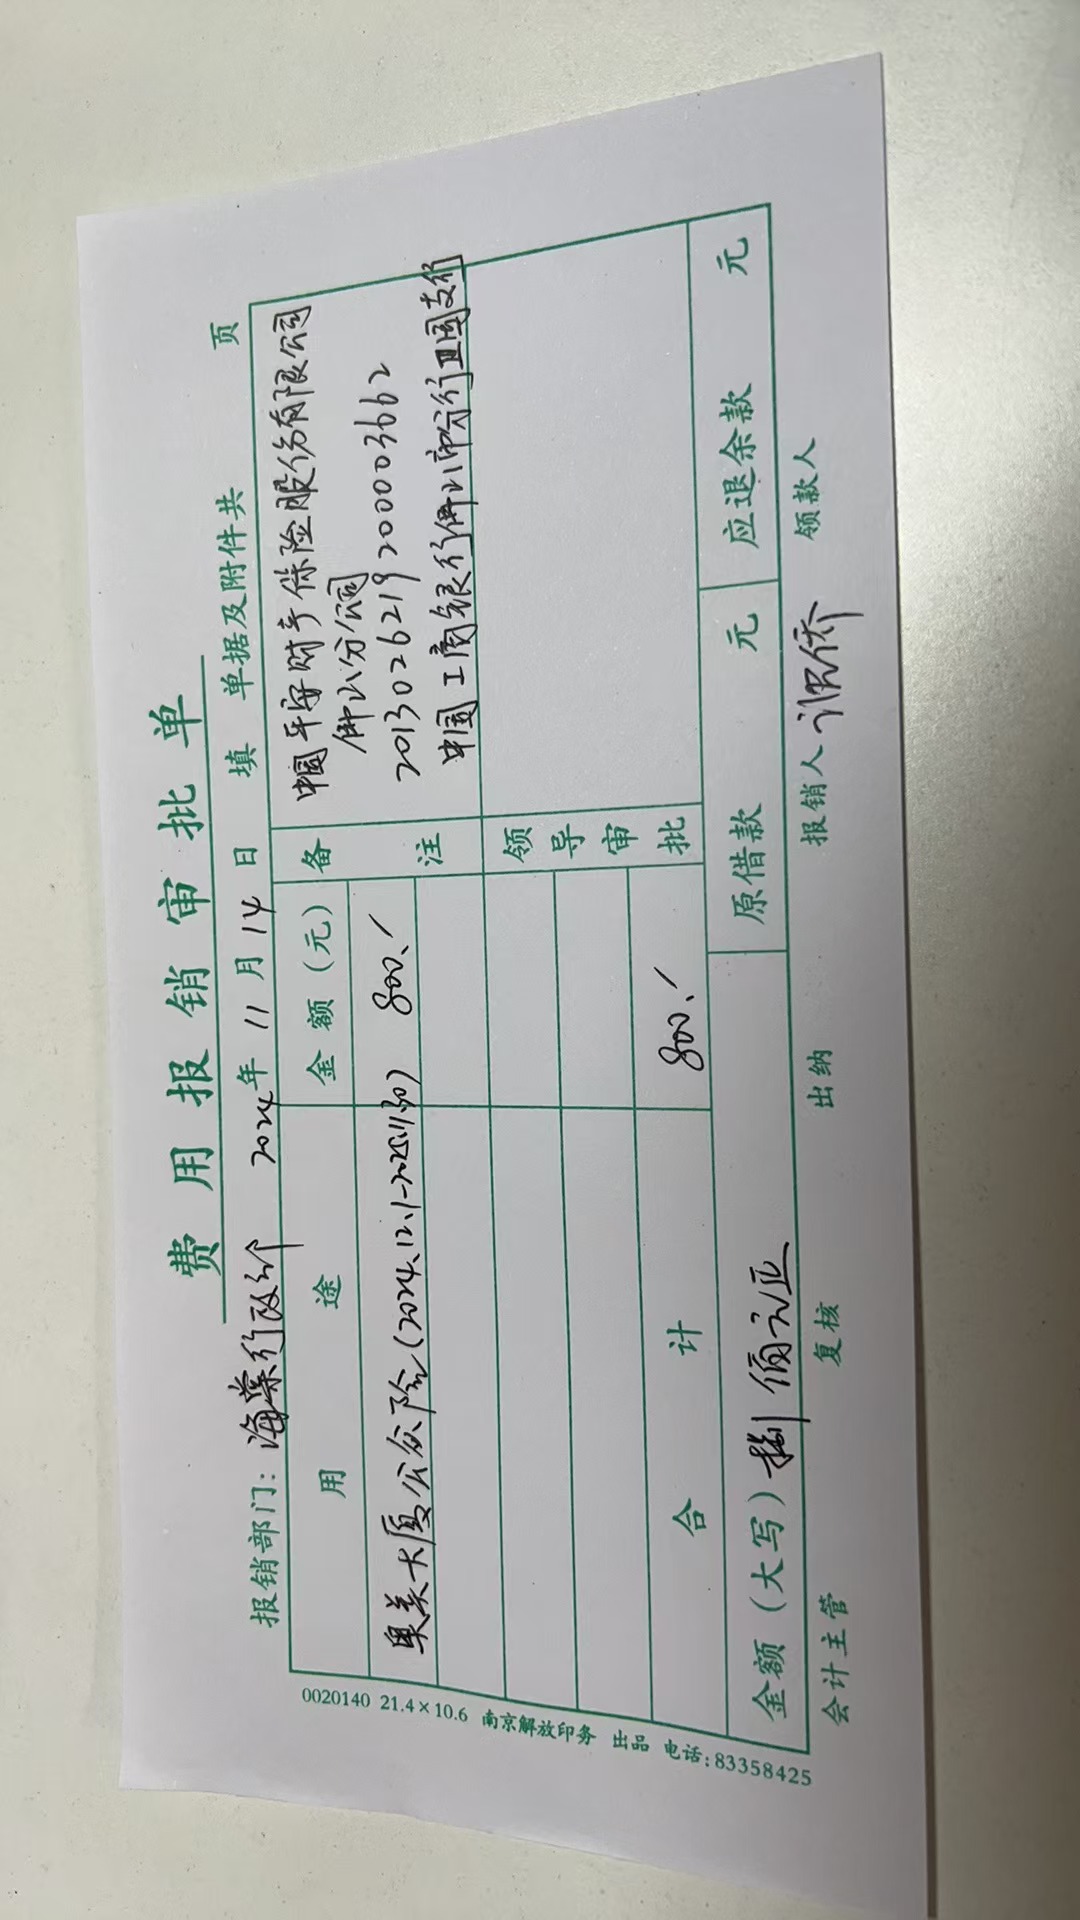 费用报销审批单
报销部门：海棠行政部 2024年 11月 14日 填 单据及附件共 页
用途 金额（元） 备注
奥美大厦公众险（2024.12.1-2025.11.30） 800.
中国平安财产保险股份有限公司
佛山分公司
2013026219200003662
中国工商银行佛山市分行卫国支行
领导审批
合计 800.
金额（大写）捌佰元正 原借款 元 应退余款 元
会计主管 复核 出纳 报销人 领款人
0020140 21.4×10.6 南京解放印务 出品 电话:83358425